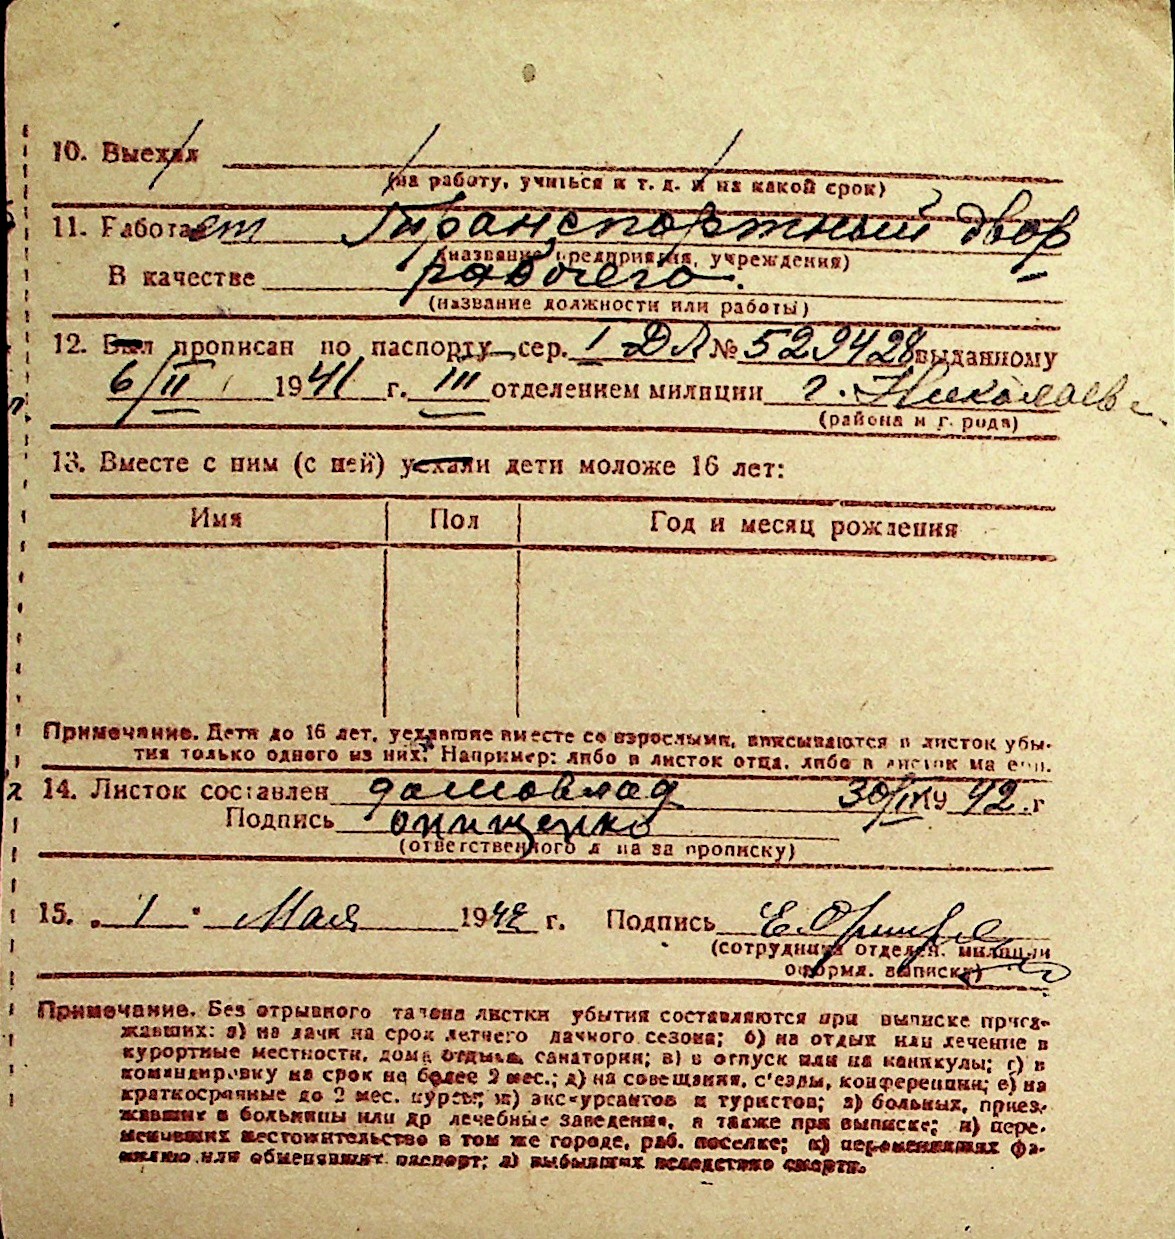 10. Выехал
(на работу, учиться и т. д. и на какой срок)
11. Работает Транспортный двор
(название предприятия, учреждения)
В качестве рабочего.
(название должности или работы)
12. Был прописан по паспорту сер. I ДЛ № 529428 выданному
6/II 1941 г. III отделением милиции г. Николаев
(района и г. рода)
13. Вместе с ним (с ней) уехали дети моложе 16 лет:
Имя Пол Год и месяц рождения
Примечание. Дети до 16 лет, уехавшие вместе со взрослыми, вписываются в листок убы-
тия только одного из них. Например: либо в листок отца, либо в листок ма ери.
14. Листок составлен 30/IV 1942 г
Подпись онищенко
(ответственного л ца за прописку)
15. „ 1 " Мая 1942 г. Подпись
(сотрудника отделен. милиции
оформл. выписку)
Примечание. Без отрывного талона листки убытия составляются при выписке приез-
жавших: а) на дачи на срок летнего дачного сезона; б) на отдых или лечение в
курортные местности, дома отдыха, санатории; в) в отпуск или на каникулы; г) в
командировку на срок не более 2 мес.; д) на совещания, с'езды, конференции; е) на
краткосрочные до 2 мес. курсы; ж) экскурсантов и туристов; з) больных, приез-
жавших в больницы или др лечебные заведения, а также при выписке; и) пере-
менивших местожительство в том же городе, раб. поселке; к) переменивших фа-
милию или обменявших паспорт; л) выбывших вследствие смерти.